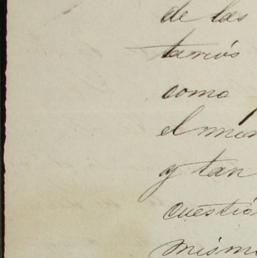 de las
tarios
como
el mun
y tan
cuestió
mismo